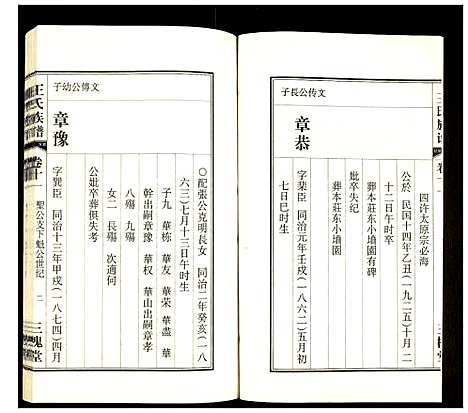 文传公長子
章恭
字棐臣 同治元年壬戌(一八六二)五月初
七日巳时生
公於 民国十四年乙丑(一九二五)十月二
十二日午时卒
葬本莊东小墙園有碑
妣卒失纪
葬本莊东小墙園
四许太原宗必海
王氏族谱
卷十一
三槐堂
○配張公克明長女 同治二年癸亥(一八
六三)七月十三日午时生
子九 華栋 華友 華荣 華藎 華
幹出嗣章豫 華权 華山出嗣章孝
八殤 九殤
女二 長殤 次適何
公妣卒葬俱失考
文傳公幼子
章豫
字巽臣 同治十三年甲戌(一八七四)四月
王氏族谱
卷十一
聖公支下魁公世纪
二
三槐堂